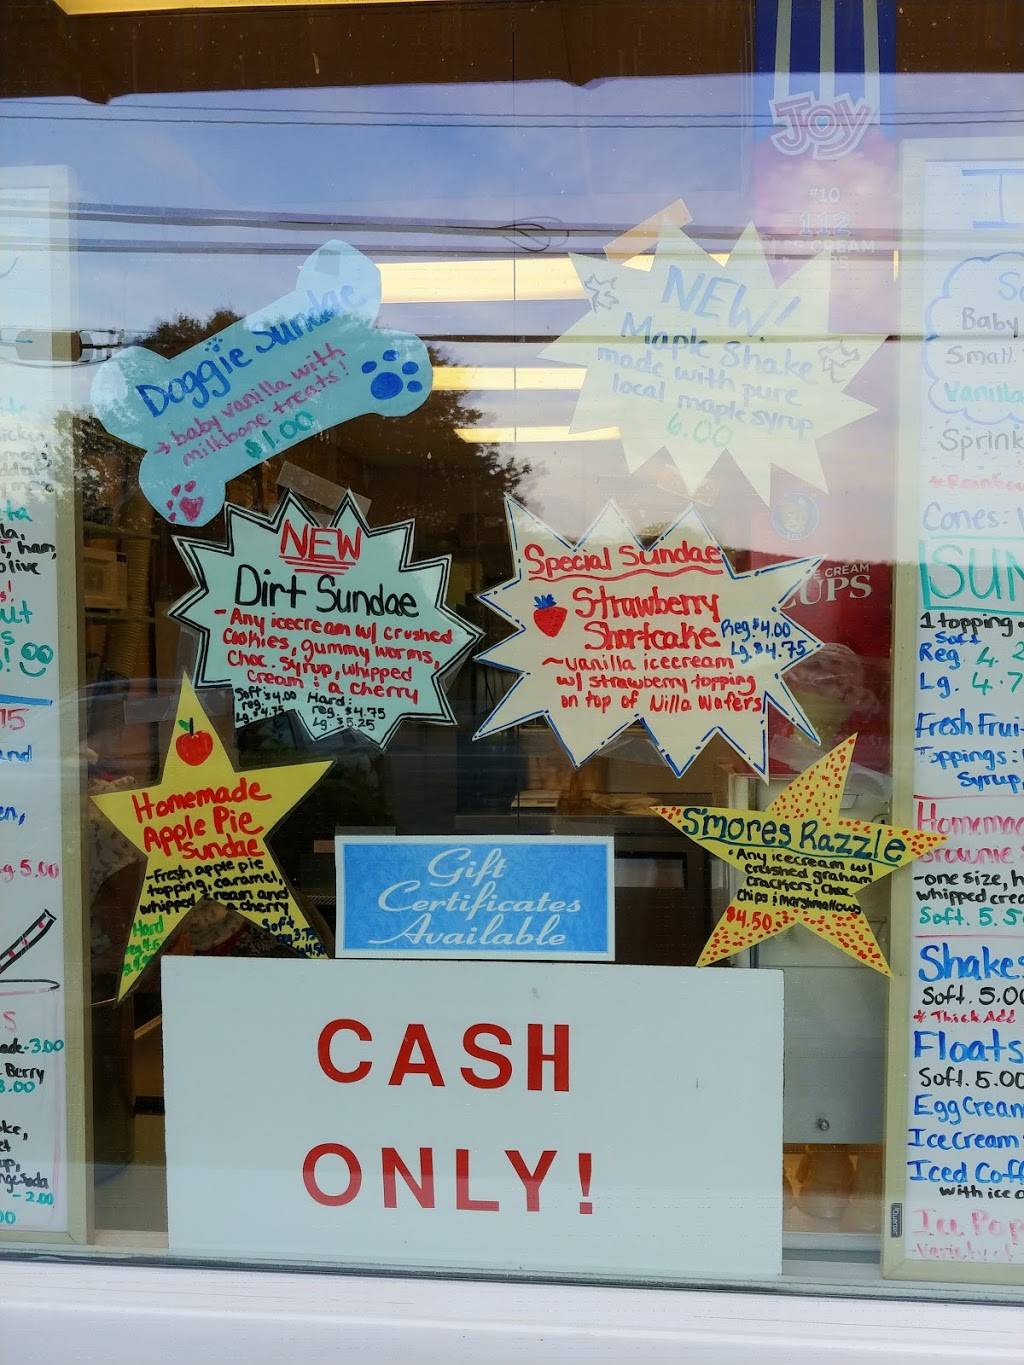 Joy
#10
112
ICE CREAM
Doggie Sundae
→ baby vanilla with
milkbone treats!
$1.00
NEW!
Maple Shake
made with pure
local maple syrup
6.00
NEW
Dirt Sundae
- Any icecream w/ crushed
Cookies, gummy worms,
Choc. Syrup, whipped
Cream & a cherry
Soft: $4.00 Hard:
reg. reg. $4.75
Lg. $4.75 Lg. $5.25
Special Sundae
Strawberry
Shortcake
Reg. $4.00
Lg. $4.75
~vanilla icecream
w/ strawberry topping
on top of Nilla Wafers
E CREAM
CUPS
Homemade
Apple Pie
Sundae
-Fresh apple pie
topping, caramel,
whipped cream and
a cherry
Hard
Soft
S'mores Razzle
• Any icecream w/
crushed graham
Crackers, Choc
Chips & Marshmallows
$4.50
Gift
Certificates
Available
CASH
ONLY!
ham,
olive
15
and
g 5.00
ade-3.00
Berry
3.00
oke,
up,
- 2.00
00
I
Baby
Small
Vanilla
Sprink
Cones:
SUN
1 topping
Soft
Reg. 4.
Lg. 4.7
Fresh Frui
Toppings:
Syrup,
Homemad
Brownie
-one size, h
whipped crea
Soft. 5.5
Shakes
Soft. 5.00
* Thick Add
Floats
Soft. 5.00
Egg Cream
Ice Cream
Iced Coff
with ice c
Ice Pop
-Variety of